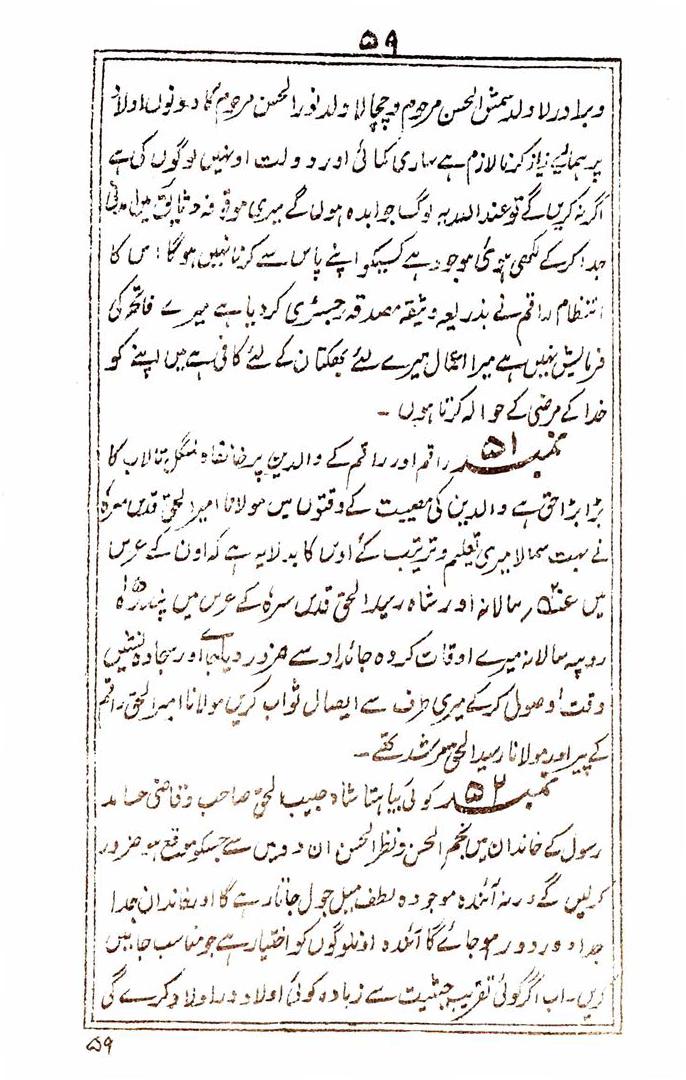 ۵۹
وبرادر لا ولد شمس الحسن مرحوم وچچا لا ولد نور الحسن مرحوم کا دونوں اولاد
پر ہمالیے نیاز کرنا لازم ہے ساری کمائی اور دولت اونہیں لوگوں کی ہے
اگر نہ کریں گے تو عند اللہ یہ لوگ جوابدہ ہوں گے میری موقوفہ وثایق میں
جدا کر کے لکھی ہوئی موجود ہے کسیکو اپنے پاس سے کرنا نہیں ہوگا اس کا
انتظام راقم نے بذریعہ وثیقہ مصدقہ رجسٹری کر دیا ہے میرے فاتحہ کی
فرمایش نہیں ہے میرا اعمال میرے لئے بھگتان کے لئے کافی ہے میں اپنے کو
خدا کے مرضی کے حوالہ کرتا ہوں ۔
نمبر ۵۱ راقم اور راقم کے والدین پر خانقاہ منگل تالاب کا
بڑا بڑا حق ہے والدین کی مصیبت کے وقتوں میں مولانا امیر الحق قدس سرہ
نے بہت سمالا میری تعلیم و تربیت کے اوس کا بدلا یہ ہے کہ اون کے عرس
میں سالانہ اور شاہ رشید الحق قدس سرہ کے عرس میں پندرہ
روپیہ سالانہ میرے اوقات کردہ جائداد سے ضرور دیا جائے اور سجادہ نشیں
وقت وصول کر کے میری طرف سے ایصال ثواب کریں مولانا امیر الحق راقم
کے پیر اور مولانا رشید الحق مرشد تھے ۔
نمبر ۵۲ کوئی بیاہتا شاہ حبیب الحق صاحب و قاضی حامد
رسول کے خاندان میں نجم الحسن و نظر الحسن ان دو میں سے جسکو موقع ہو ضرور
کرلیں گے ورنہ آئندہ موجودہ لطف میل جول جاتا رہے گا اور خاندان جدا
جدا و دور دور ہو جائے گا آئندہ اونلوگوں کو اختیار ہے جو مناسب جانیں
کریں ۔ اب اگر کوئی تقریب حیثیت سے زیادہ کوئی اولاد در اولاد کرے گی
۵۹